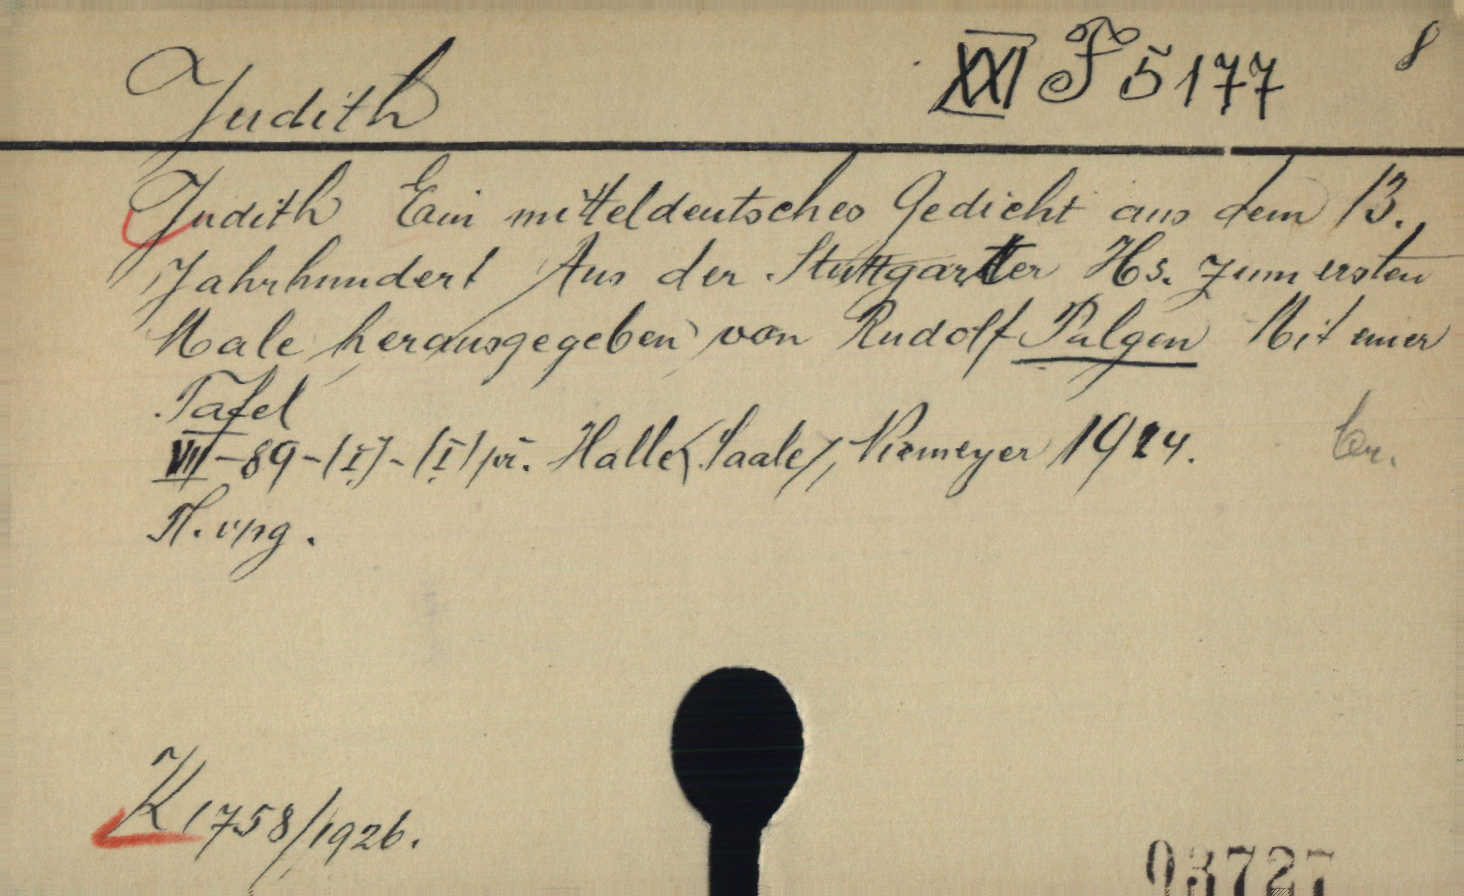 Judith XXI F 5177 8
Judith Ein mitteldeutsches Gedicht aus dem 13.
Jahrhundert Aus der Stuttgarter Hs. zum ersten
Male herausgegeben von Rudolf Palgen Mit einer
Tafel
VII-89-(I)-(I) pi. Halle (Saale), Niemeyer 1924.
K 1758/1926.
93727